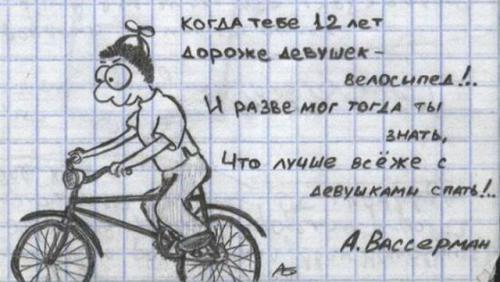 когда тебе 12 лет
дороже девушек -
велосипед!..
И разве мог тогда ты
знать,
Что лучше всёже с
девушками спать!..
А. Вассерман
АБ